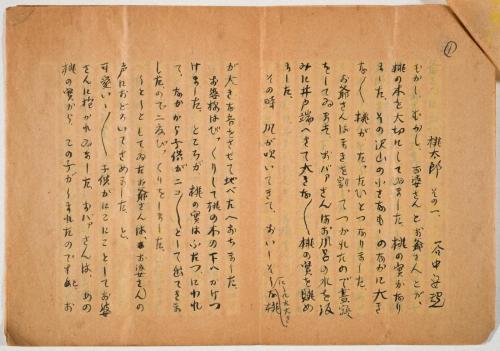 ①
桃太郎 その一、 谷中安規
むかし、むかし、お婆さんとお爺さんとが、
桃の木を大切にしてゐました。桃の実がなり
ました、その沢山の小さなもものなかに大き
な〱桃がたった、ひとつなりました。
お爺さんはまきを割ってつかれたので昼寝
をしてゐます、おバァさんはお風呂の水を汲
みに井戸端へきて大きな〱桃の実を眺め
ました。
その時、風が吹いてきて、おいしそうな桃
が大きな音をさせて地べたへおちました。
お婆様はびっくりして桃の木の下へかけつ
けました、ところが、桃の実はふたつにわれ
て、なかから子供がニコ〱として出てきま
したので二度びっくりをしました。
うと〱としてゐたお爺さんはお婆さんの
声におどろいてさめました、と、
可愛い〱子供がにこ〱としてお婆
さんに抱かれゐました、おバァさんは、あの
桃の実から、この子がうまれたのですよ、お